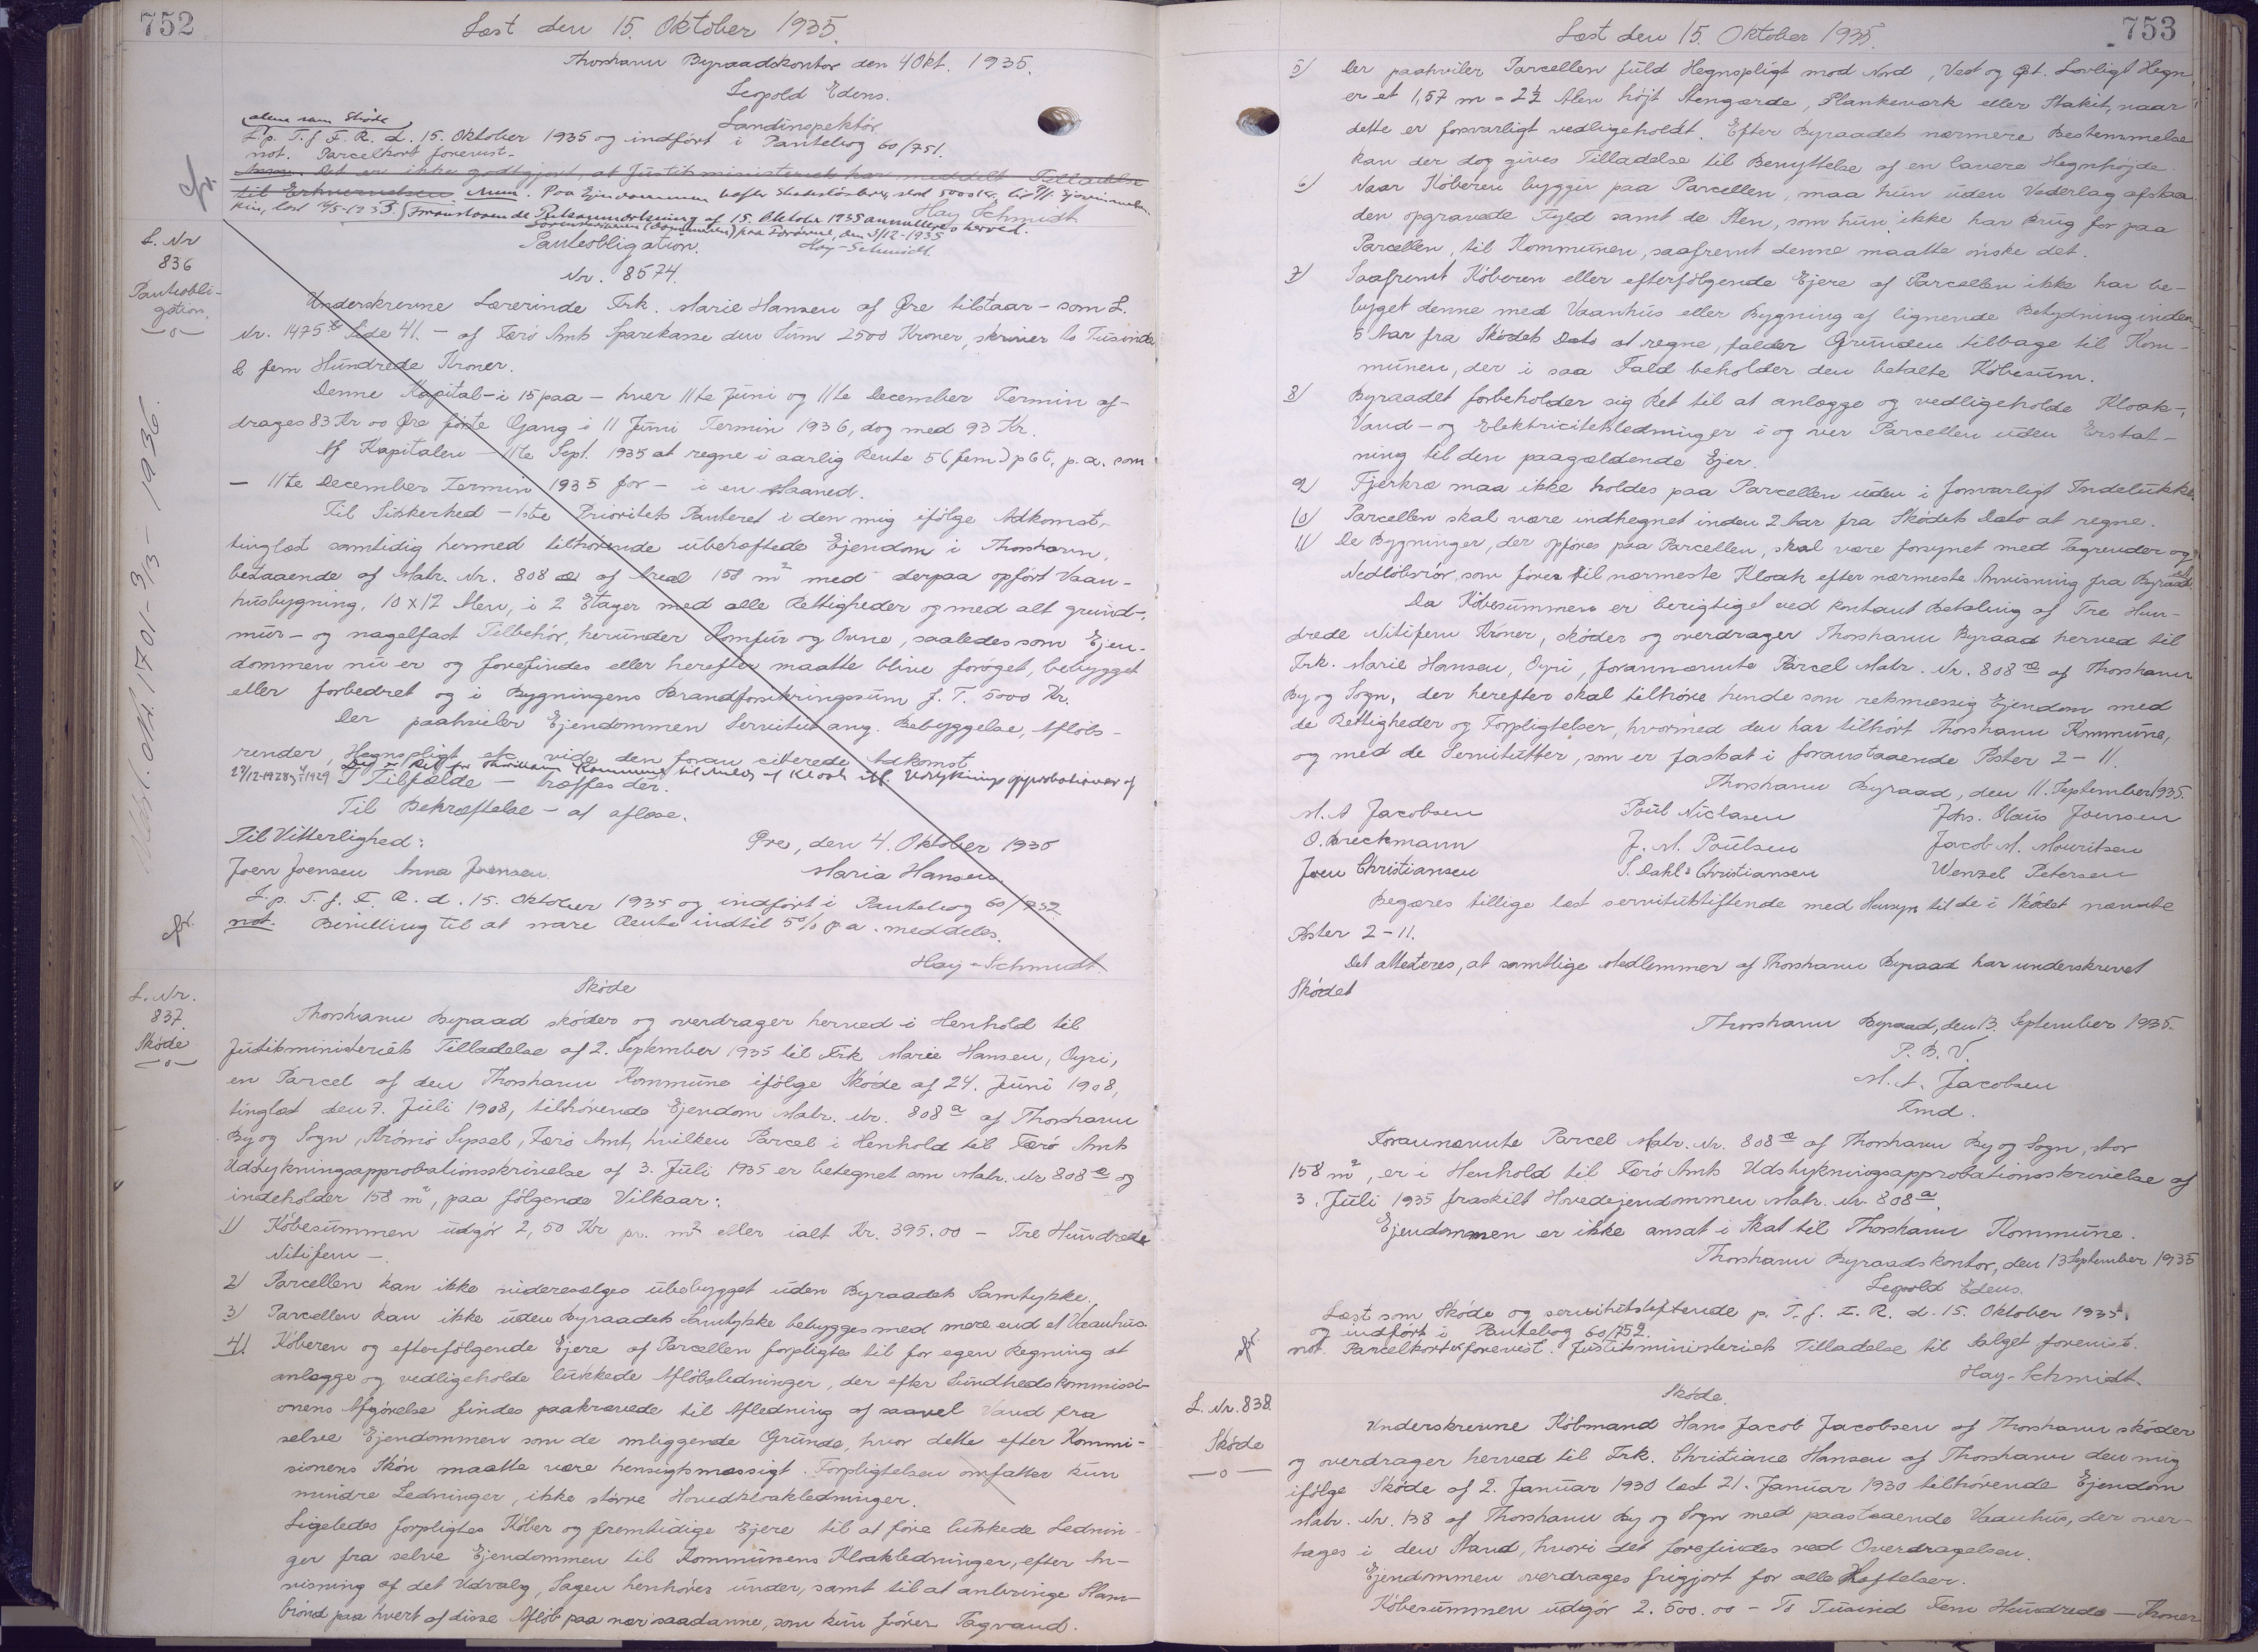 752
Læst den 15. Oktober 1935.
Thorshavn Byraadskontor den 4 Okt. 1935.
Leopold Edens.
Landinspektör.
alene som Skøde
L. p. T. f. F. R. d. 15. Oktober 1935 og indført i Pantebog 60/751.
not. Parcelkort forevist.
Anm. Det er ikke godtgjort, at Justitsministeriet har meddelt Tilladelse
til Erhvervelsen Anm. Paa Ejendommen hæfter
Hay Schmidt
Foranstaaende Retsanmærkning af 15. Oktober 1935 annulleres herved.
Hay-Schmidt.
L. Nr
836
Panteobli-
gation.
Panteobligation.
Nr. 8574.
Underskrevne Lærerinde Frk. Marie Hansen af Øre tilstaar - som L.
Nr. 1475 Side 41. - af Færø Amts Sparekasse den Sum 2500 Kroner, skriver to Tusinde
& fem Hundrede Kroner.
Denne Kapital - i 15 paa - hver 11te Juni og 11te December Termin af-
drages 83 Kr 00 Øre første Gang i 11 Juni Termin 1936, dog med 93 Kr.
Af Kapitalen - 11te Sept. 1935 at regne i aarlig Rente 5 (fem) pCt. p.a. som
- 11te December Termin 1935 for - i en Maaned.
Til Sikkerhed - 1ste Prioritets Panteret i den mig ifølge Adkomst,
tinglæst samtidig hermed tilhørende ubehæftede Ejendom i Thorshavn,
bestaaende af Matr. Nr. 808 æ af Areal 158 m² med derpaa opført Vaan-
husbygning, 10 x 12 Alen, i 2 Etager med alle Rettigheder og med alt grund-,
mur- og nagelfast Tilbehör, herunder Komfur og Ovne, saaledes som Ejen-
dommen nu er og forefindes eller herefter maatte blive forøget, bebygget
eller forbedret og i Bygningens Brandforsikringssum f. T. 5000 Kr.
Der paahviler Ejendommen Servitut ang. Bebyggelse, Afløbs-
render, Hegnspligt etc vide den foran citerede Adkomst
I Tilfælde - træffes der.
Til Bekræftelse - at aflæse.
Til Vitterlighed:
Øre, den 4. Oktober 1935
Joen Joensen Anna Joensen.
Maria Hansen.
L. p. T. f. F. R. d. 15. Oktober 1935 og indført i Pantebog 60/752.
not. Bevilling til at svare Rente indtil 5% p a. meddeles.
Hay-Schmidt.
L. Nr.
837.
Skøde
Skøde
Thorshavn Byraad skøder og overdrager herved i Henhold til
Justitsministeriets Tilladelse af 2. September 1935 til Frk Marie Hansen, Oyri,
en Parcel af den Thorshavn Kommune ifølge Skøde af 24. Juni 1908,
tinglæst den 7. Juli 1908, tilhørende Ejendom Matr. Nr. 808 a af Thorshavn
By og Sogn, Strömö Syssel, Færö Amt, hvilken Parcel i Henhold til Færö Amts
Udstykningsapprobationsskrivelse af 3. Juli 1935 er betegnet som Matr. Nr 808 æ og
indeholder 158 m², paa følgende Vilkaar:
1) Købesummen udgør 2,50 Kr pr. m² eller ialt Kr. 395.00 - Tre Hundrede
Nitifem -.
2) Parcellen kan ikke videresælges ubebygget uden Byraadets Samtykke.
3) Parcellen kan ikke uden Byraadets Samtykke bebygges med mere end et Vaanhus.
4) Køberen og efterfølgende Ejere af Parcellen forpligtes til for egen Regning at
anlægge og vedligeholde lukkede Afløbsledninger, der efter Sundhedskommissi-
onens Afgørelse findes paakrævede til Afledning af saavel Vand fra
selve Ejendommen som de omliggende Grunde, hvor dette efter Kommi-
sionens Skøn maatte være hensigtsmæssigt. Forpligtelsen omfatter kun
mindre Ledninger, ikke større Hovedkloakledninger.
Ligeledes forpligtes Køber og fremtidige Ejere til at føre lukkede Lednin-
ger fra selve Ejendommen til Kommunens Kloakledninger, efter An-
visning af det Udvalg, Sagen henhører under, samt til at anbringe Slam-
brønd paa hvert af disse Afløb paa nær saadanne, som kun fører Tagvand.
753
Læst den 15. Oktober 1935.
5) Der paahviler Parcellen fuld Hegnspligt mod Nord, Vest og Øst. Lovligt Hegn
er et 1,57 m = 2½ Alen højt Stengærde, Plankeværk eller Stakit, naar
dette er forsvarligt vedligeholdt. Efter Byraadets nærmere Bestemmelse
kan der dog gives Tilladelse til Benyttelse af en lavere Hegnhøjde.
6) Naar Køberen bygger paa Parcellen, maa hun uden Vederlag afstaa
den opgravede Fyld samt de Sten, som hun ikke har Brug for paa
Parcellen, til Kommunen, saafremt denne maatte ønske det.
7) Saafremt Køberen eller efterfølgende Ejere af Parcellen ikke har be-
bygget denne med Vaanhus eller Bygning af lignende Betydning inden
5 Aar fra Skødets Dato at regne, falder Grunden tilbage til Kom-
munen, der i saa Fald beholder den betalte Købesum.
8) Byraadet forbeholder sig Ret til at anlægge og vedligeholde Kloak-,
Vand- og Elektricitetsledninger i og over Parcellen uden Erstat-
ning til den paagældende Ejer.
9) Fjerkræ maa ikke holdes paa Parcellen uden i forsvarligt Indelukke.
10) Parcellen skal være indhegnet inden 2 Aar fra Skødets Dato at regne.
11) De Bygninger, der opføres paa Parcellen, skal være forsynet med Tagrender og
Nedløbsrør, som føres til nærmeste Kloak efter nærmeste Anvisning fra Byraadet.
Da Købesummen er berigtiget ved kontant Betaling af Tre Hun-
drede Nitifem Kroner, skøder og overdrager Thorshavn Byraad herved til
Frk. Marie Hansen, Oyri, forannævnte Parcel Matr. Nr. 808 æ af Thorshavn
By og Sogn, der herefter skal tilhøre hende som retmæssig Ejendom med
de Rettigheder og Forpligtelser, hvormed den har tilhørt Thorshavn Kommune,
og med de Servitutter, som er fastsat i foranstaaende Poster 2 - 11.
Thorshavn Byraad, den 11. September 1935.
M. A Jacobsen Poul Niclasen Johs. Olaus Joensen
O. Breckmann J. M. Poulsen Jacob M. Mouritsen
Joen Christiansen S. Dahl-Christiansen Wenzel Petersen
Begæres tillige læst servitutstiftende med Hensyn til de i Skødet nævnte
Poster 2 - 11.
Det attesteres, at samtlige Medlemmer af Thorshavn Byraad har underskrevet
Skødet
Thorshavn Byraad, den 13. September 1935.
P. B. V.
M. A. Jacobsen
Fmd.
Forannævnte Parcel Matr. Nr. 808 æ af Thorshavn By og Sogn, stor
158 m², er i Henhold til Færö Amts Udstykningsapprobationsskrivelse af
3. Juli 1935 fraskilt Hovedejendommen Matr. Nr. 808 a.
Ejendommen er ikke ansat i Skat til Thorshavn Kommune.
Thorshavn Byraadskontor, den 13 September 1935
Leopold Edens.
Læst som Skøde og servitutstiftende p. T. f. F. R. d. 15. Oktober 1935
og indført i Pantebog 60/752.
not. Parcelkortet forevist. Justitsministeriets Tilladelse til Salget forevist.
Hay-Schmidt.
L. Nr. 838.
Skøde
Skøde.
Underskrevne Købmand Hans Jacob Jacobsen af Thorshavn skøder
og overdrager herved til Frk. Christiane Hansen af Thorshavn den mig
ifølge Skøde af 2. Januar 1930 læst 21. Januar 1930 tilhørende Ejendom
Matr. Nr. 138 af Thorshavn By og Sogn med paastaaende Vaanhus, der over-
tages i den Stand, hvori det forefindes ved Overdragelsen.
Ejendommen overdrages frigjort for alle Hæftelser.
Købesummen udgør 2.500.00 - To Tusind Fem Hundrede - Kroner